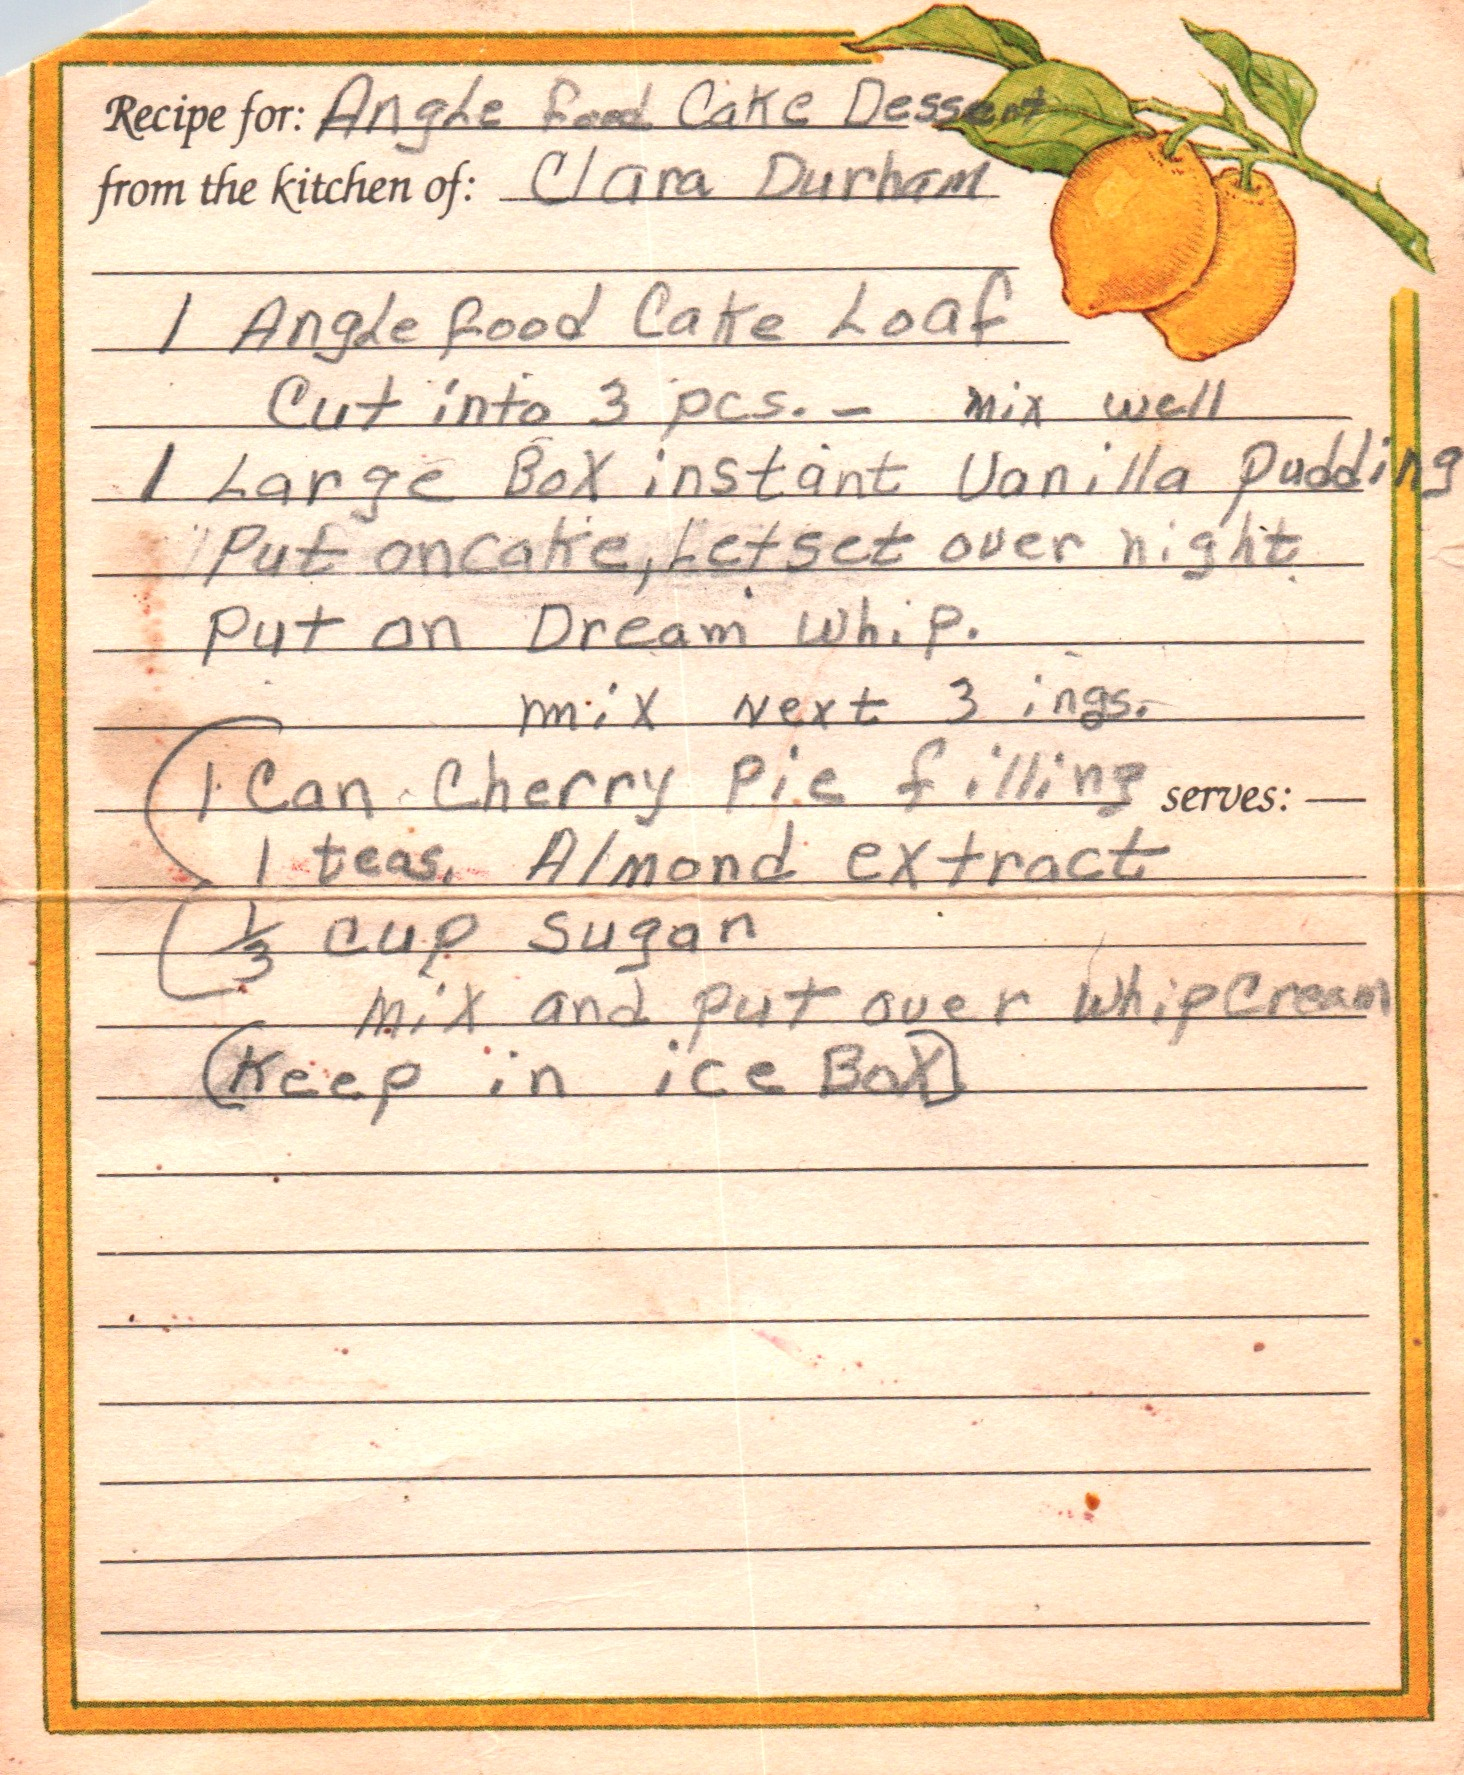 Recipe for: Angle food Cake Dessert
from the kitchen of: Clara Durham
1 Angle food Cake Loaf
Cut into 3 pcs. - mix well
1 Large Box instant Vanilla Pudding
Put on cake, Let set over night
Put on Dream Whip.
mix Next 3 ings.
1 Can Cherry Pie filling
serves:
1 teas. Almond extract
1/3 cup sugar
mix and put over Whip Cream
(Keep in ice Box)